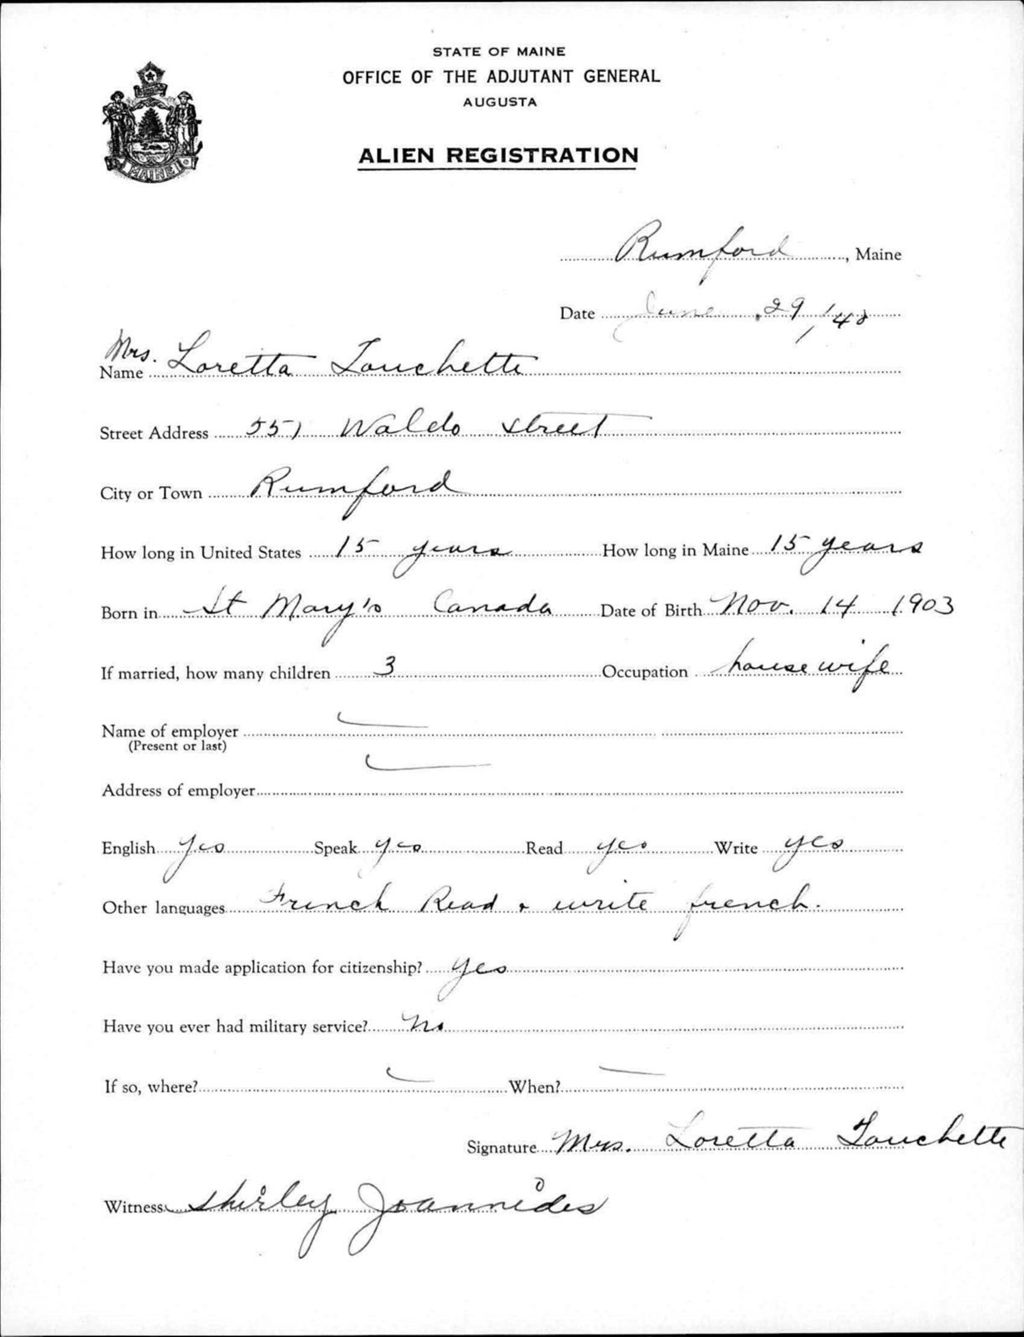 STATE OF MAINE
OFFICE OF THE ADJUTANT GENERAL
AUGUSTA
ALIEN REGISTRATION
MAINE
Rumford, Maine
Date June 29/40
Mrs.
Name Loretta Touchette
Street Address 551 Waldo street
City or Town Rumford
How long in United States 15 years How long in Maine 15 years
Born in St Mary's Canada Date of Birth Nov. 14 1903
If married, how many children 3 Occupation housewife
Name of employer
(Present or last)
Address of employer
English Yes Speak yes Read yes Write yes
Other languages French Read + write french.
Have you made application for citizenship? Yes
Have you ever had military service? No
If so, where? When?
Signature Mrs. Loretta Touchette
Witness Shirley Joannides